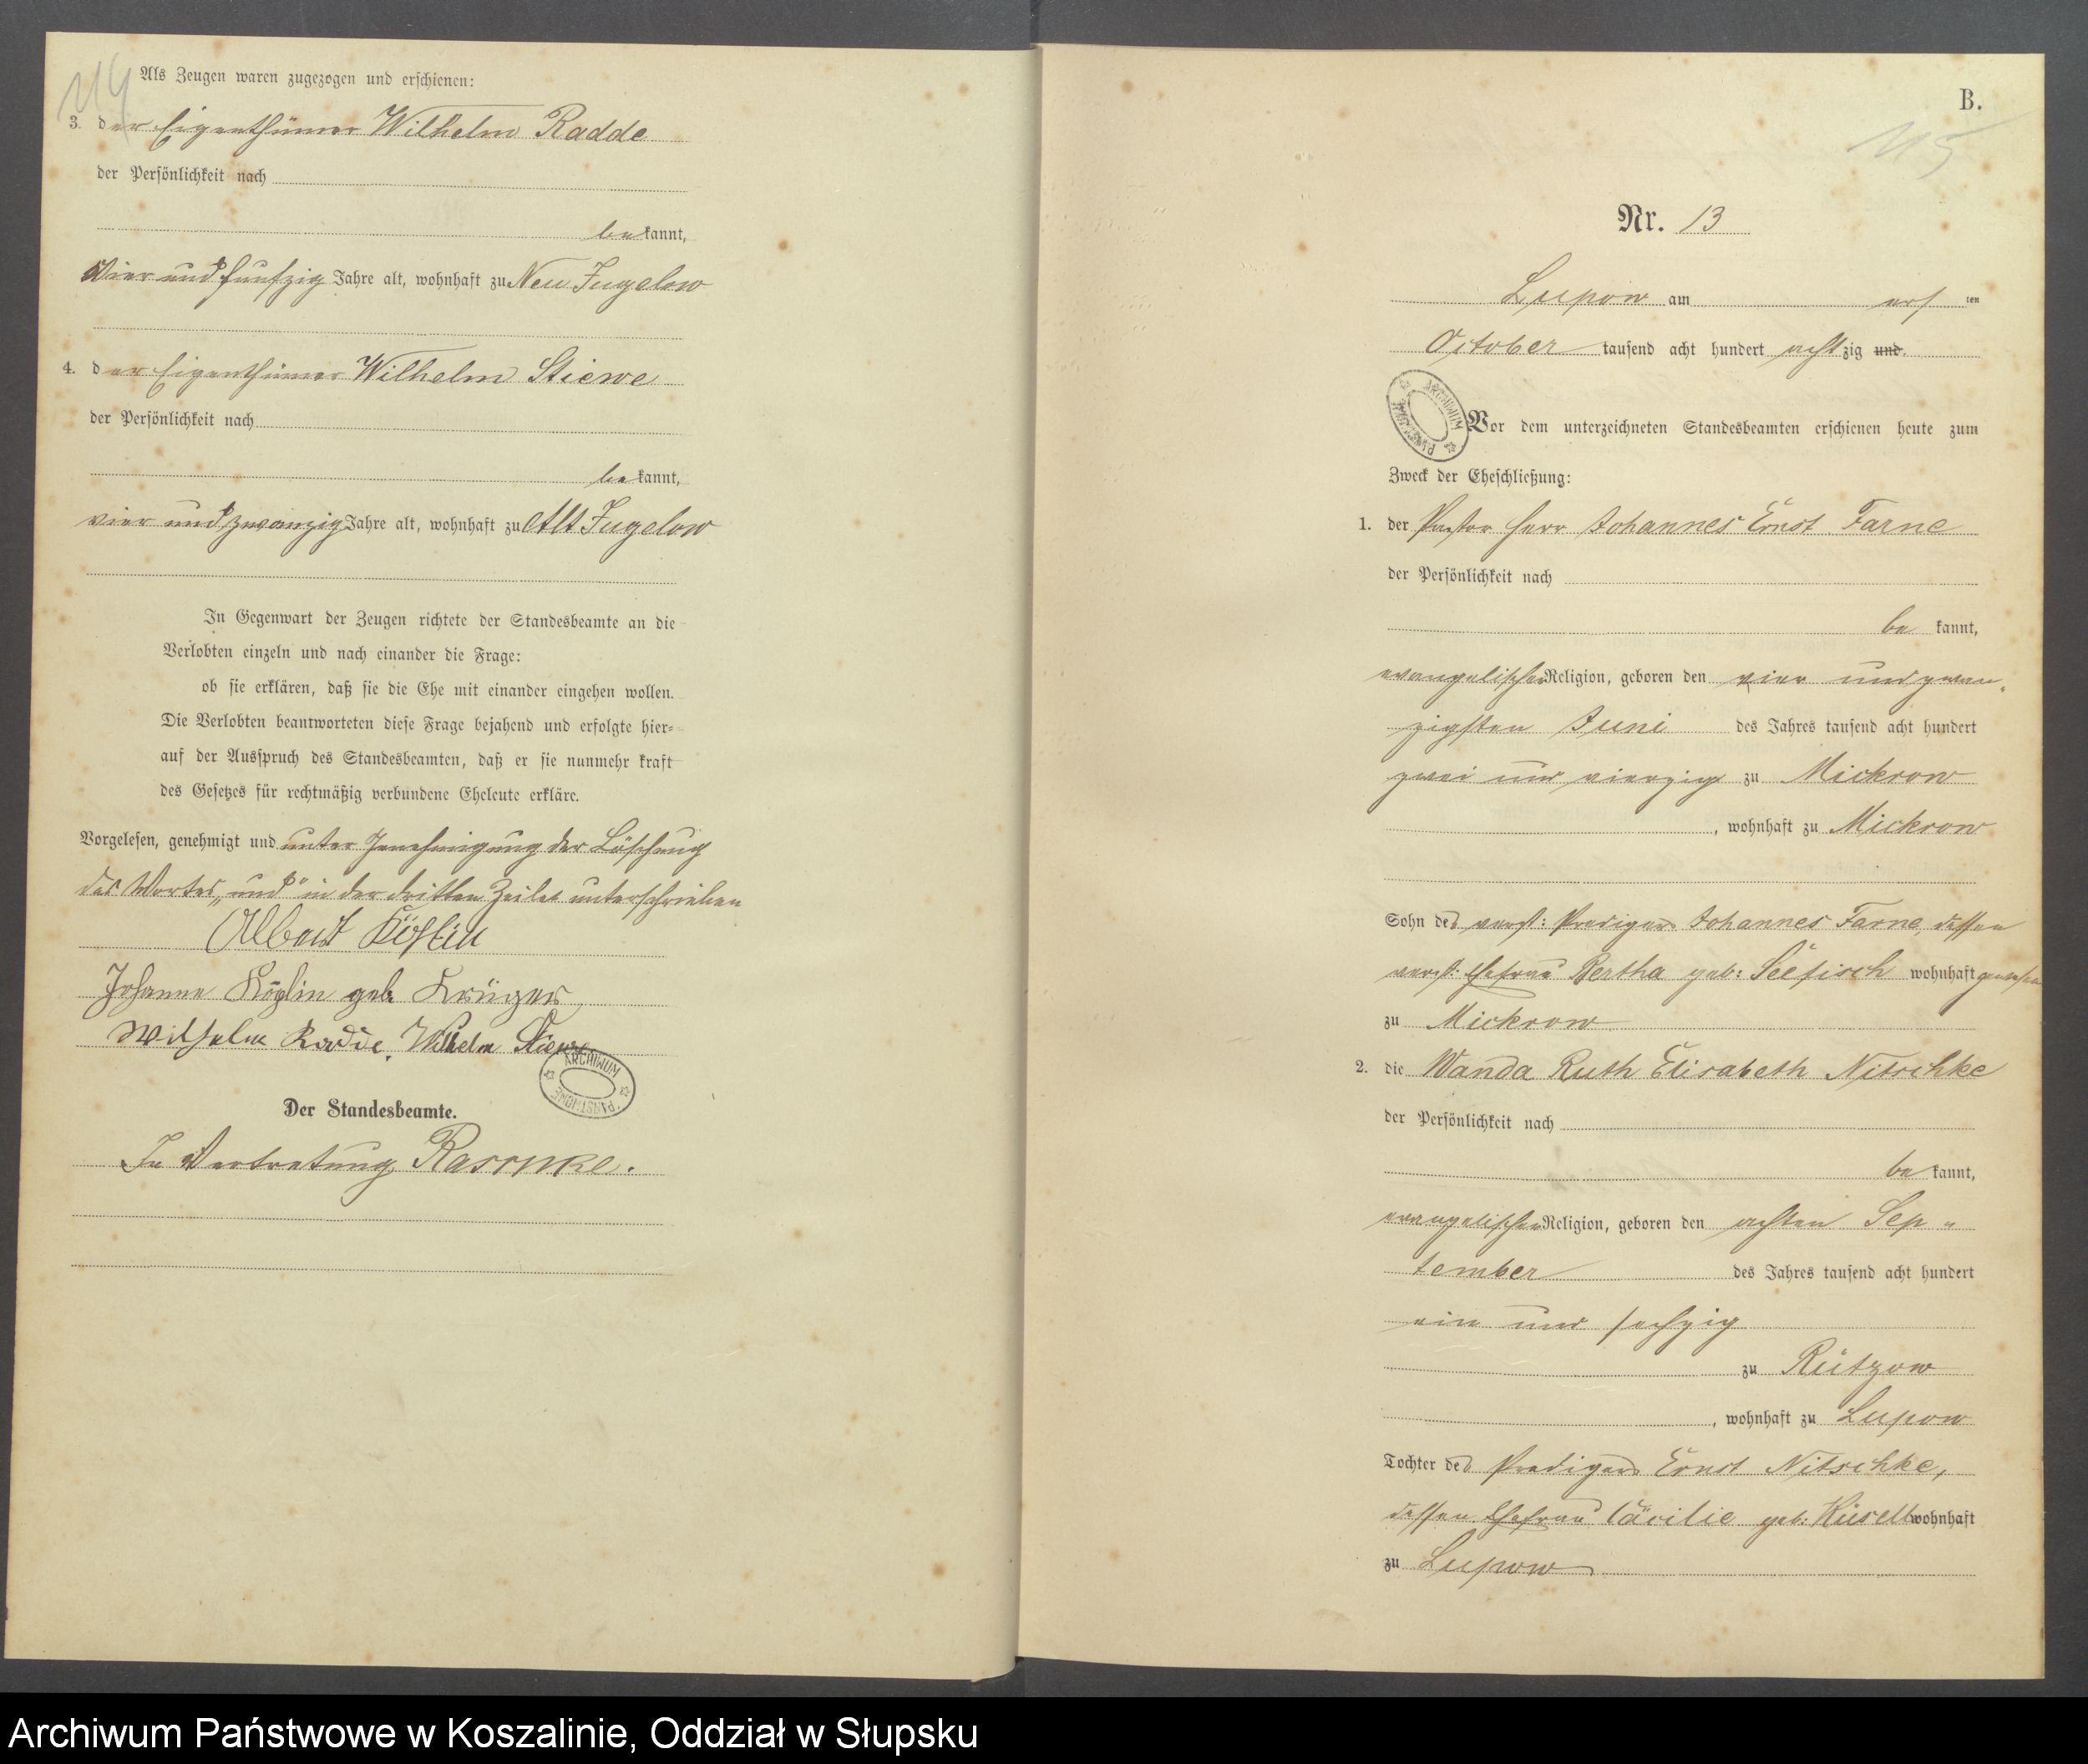 114
Als Zeugen waren zugezogen und erschienen:
3. der Eigenthümer Wilhelm Radde
der Persönlichkeit nach
bekannt,
vier und funfzig Jahre alt, wohnhaft zu Neu Jugelow
4. der Eigenthümer Wilhelm Stiewe
der Persönlichkeit nach
bekannt,
vier und zwanzig Jahre alt, wohnhaft zu Alt Jugelow
In Gegenwart der Zeugen richtete der Standesbeamte an die
Verlobten einzeln und nach einander die Frage:
ob sie erklären, daß sie die Ehe mit einander eingehen wollen.
Die Verlobten beantworteten diese Frage bejahend und erfolgte hier-
auf der Ausspruch des Standesbeamten, daß er sie nunmehr kraft
des Gesetzes für rechtmäßig verbundene Eheleute erkläre.
Vorgelesen, genehmigt und unter Genehmigung der Löschung
des Wortes „und" in der dritten Zeile unterschrieben
Albert Köslin
Johanne Köslin geb. Krüger
Wilhelm Radde, Wilhelm Stiewe
ARCHIWUM PAŃSTWOWE
Der Standesbeamte.
In Vertretung
B.
115
Nr. 13
Lupow am ersten
October tausend acht hundert achtzig und
ARCHIWUM PAŃSTWOWE
Vor dem unterzeichneten Standesbeamten erschienen heute zum
Zweck der Eheschließung:
1. der Pastor Herr Johannes Ernst Farne
der Persönlichkeit nach
be kannt,
evangelischer Religion, geboren den vier und zwan-
zigsten Juni des Jahres tausend acht hundert
zwei und vierzig zu Mickrow
, wohnhaft zu Mickrow
Sohn des verst: Predigers Johannes Farne, dessen
verst. Ehefrau Bertha geb: Seefisch wohnhaft gewesen
zu Mickrow
2. die Wanda Ruth Elisabeth Nitschke
der Persönlichkeit nach
be kannt,
evangelischer Religion, geboren den achten Sep-
tember des Jahres tausend acht hundert
ein und sechzig
zu Rützow
, wohnhaft zu Lupow
Tochter des Predigers Ernst Nitschke,
dessen Ehefrau Cäcilie geb: Küsell wohnhaft
zu Lupow
Archiwum Państwowe w Koszalinie, Oddział w Słupsku